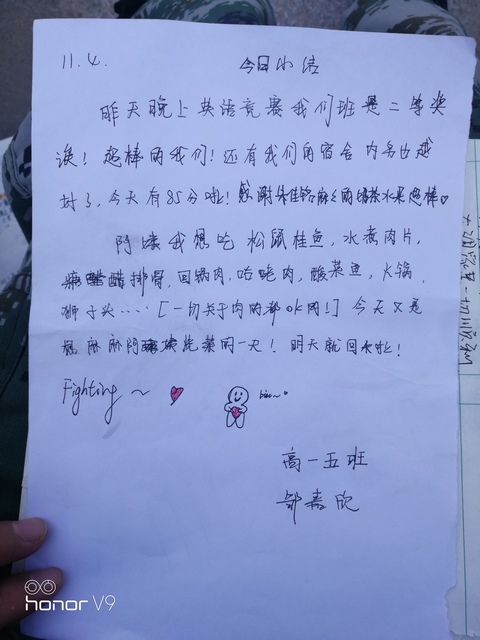 11.4. 今日小结
昨天晚上英语竞赛我们班是二等奖
诶！超棒的我们！还有我们的宿舍内务也越
好了，今天有85分啦！感谢 水果超棒♥
阿姨我想吃松鼠桂鱼，水煮肉片，
糖醋排骨，回锅肉，咕咾肉，酸菜鱼，火锅，
狮子头……[一切关于肉的都OK的！] 今天又是
的一天！明天就回 啦！
Fighting ～
biu~
高一五班
邹嘉欣
honor V9